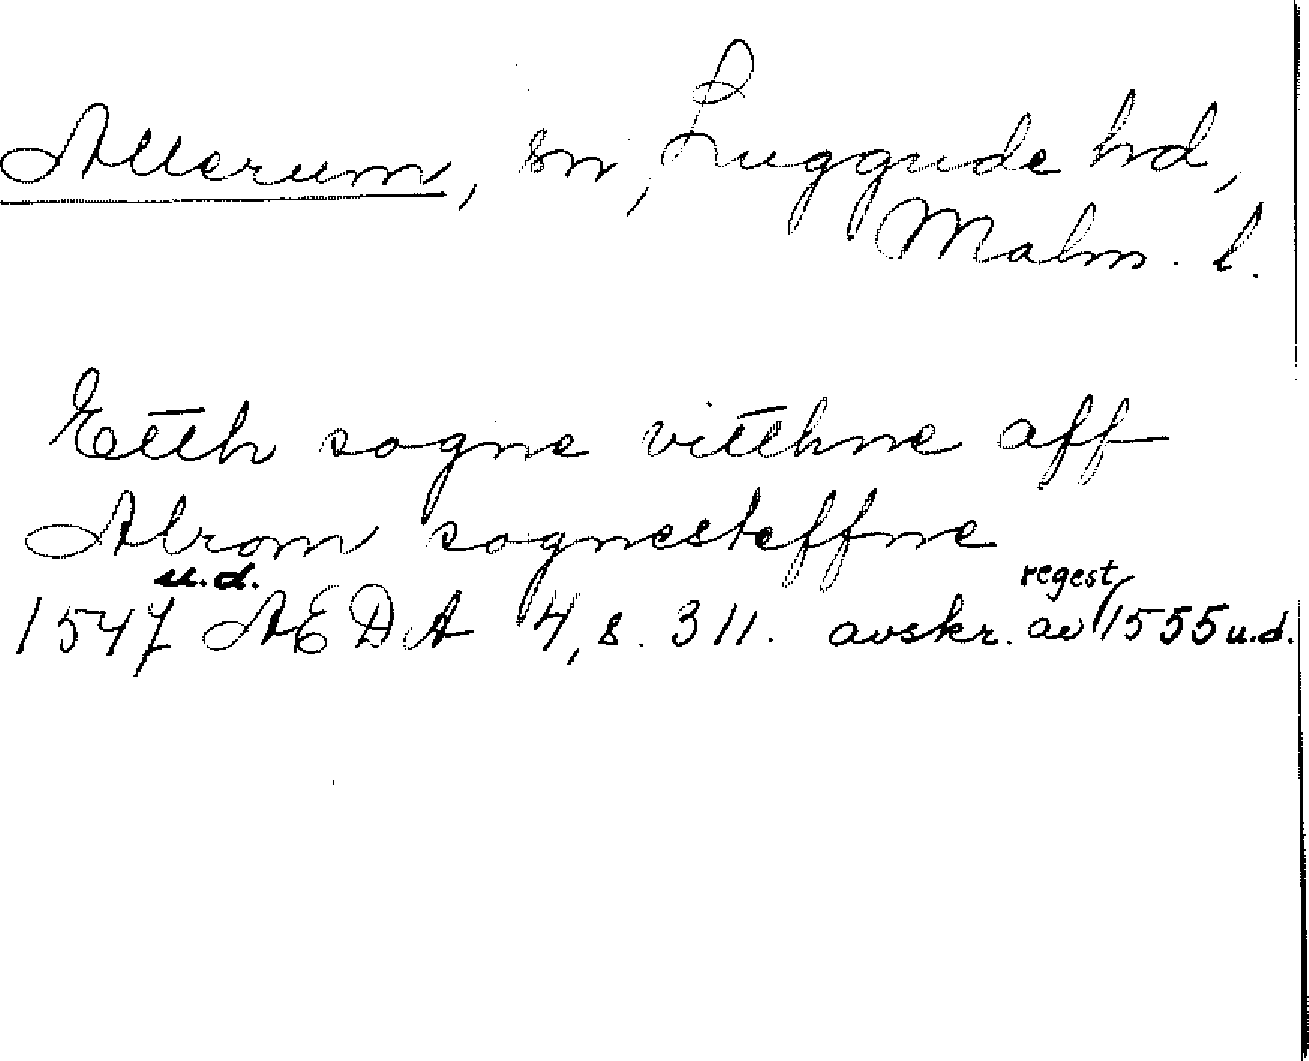 Allerum, sn, Luggude hd,
Malm. l.
Etth sogne vitthne aff
Alrom sognesteffne
u.d. regest
1547 AEDA 4, s. 311. avskr. av 1555 u.d.